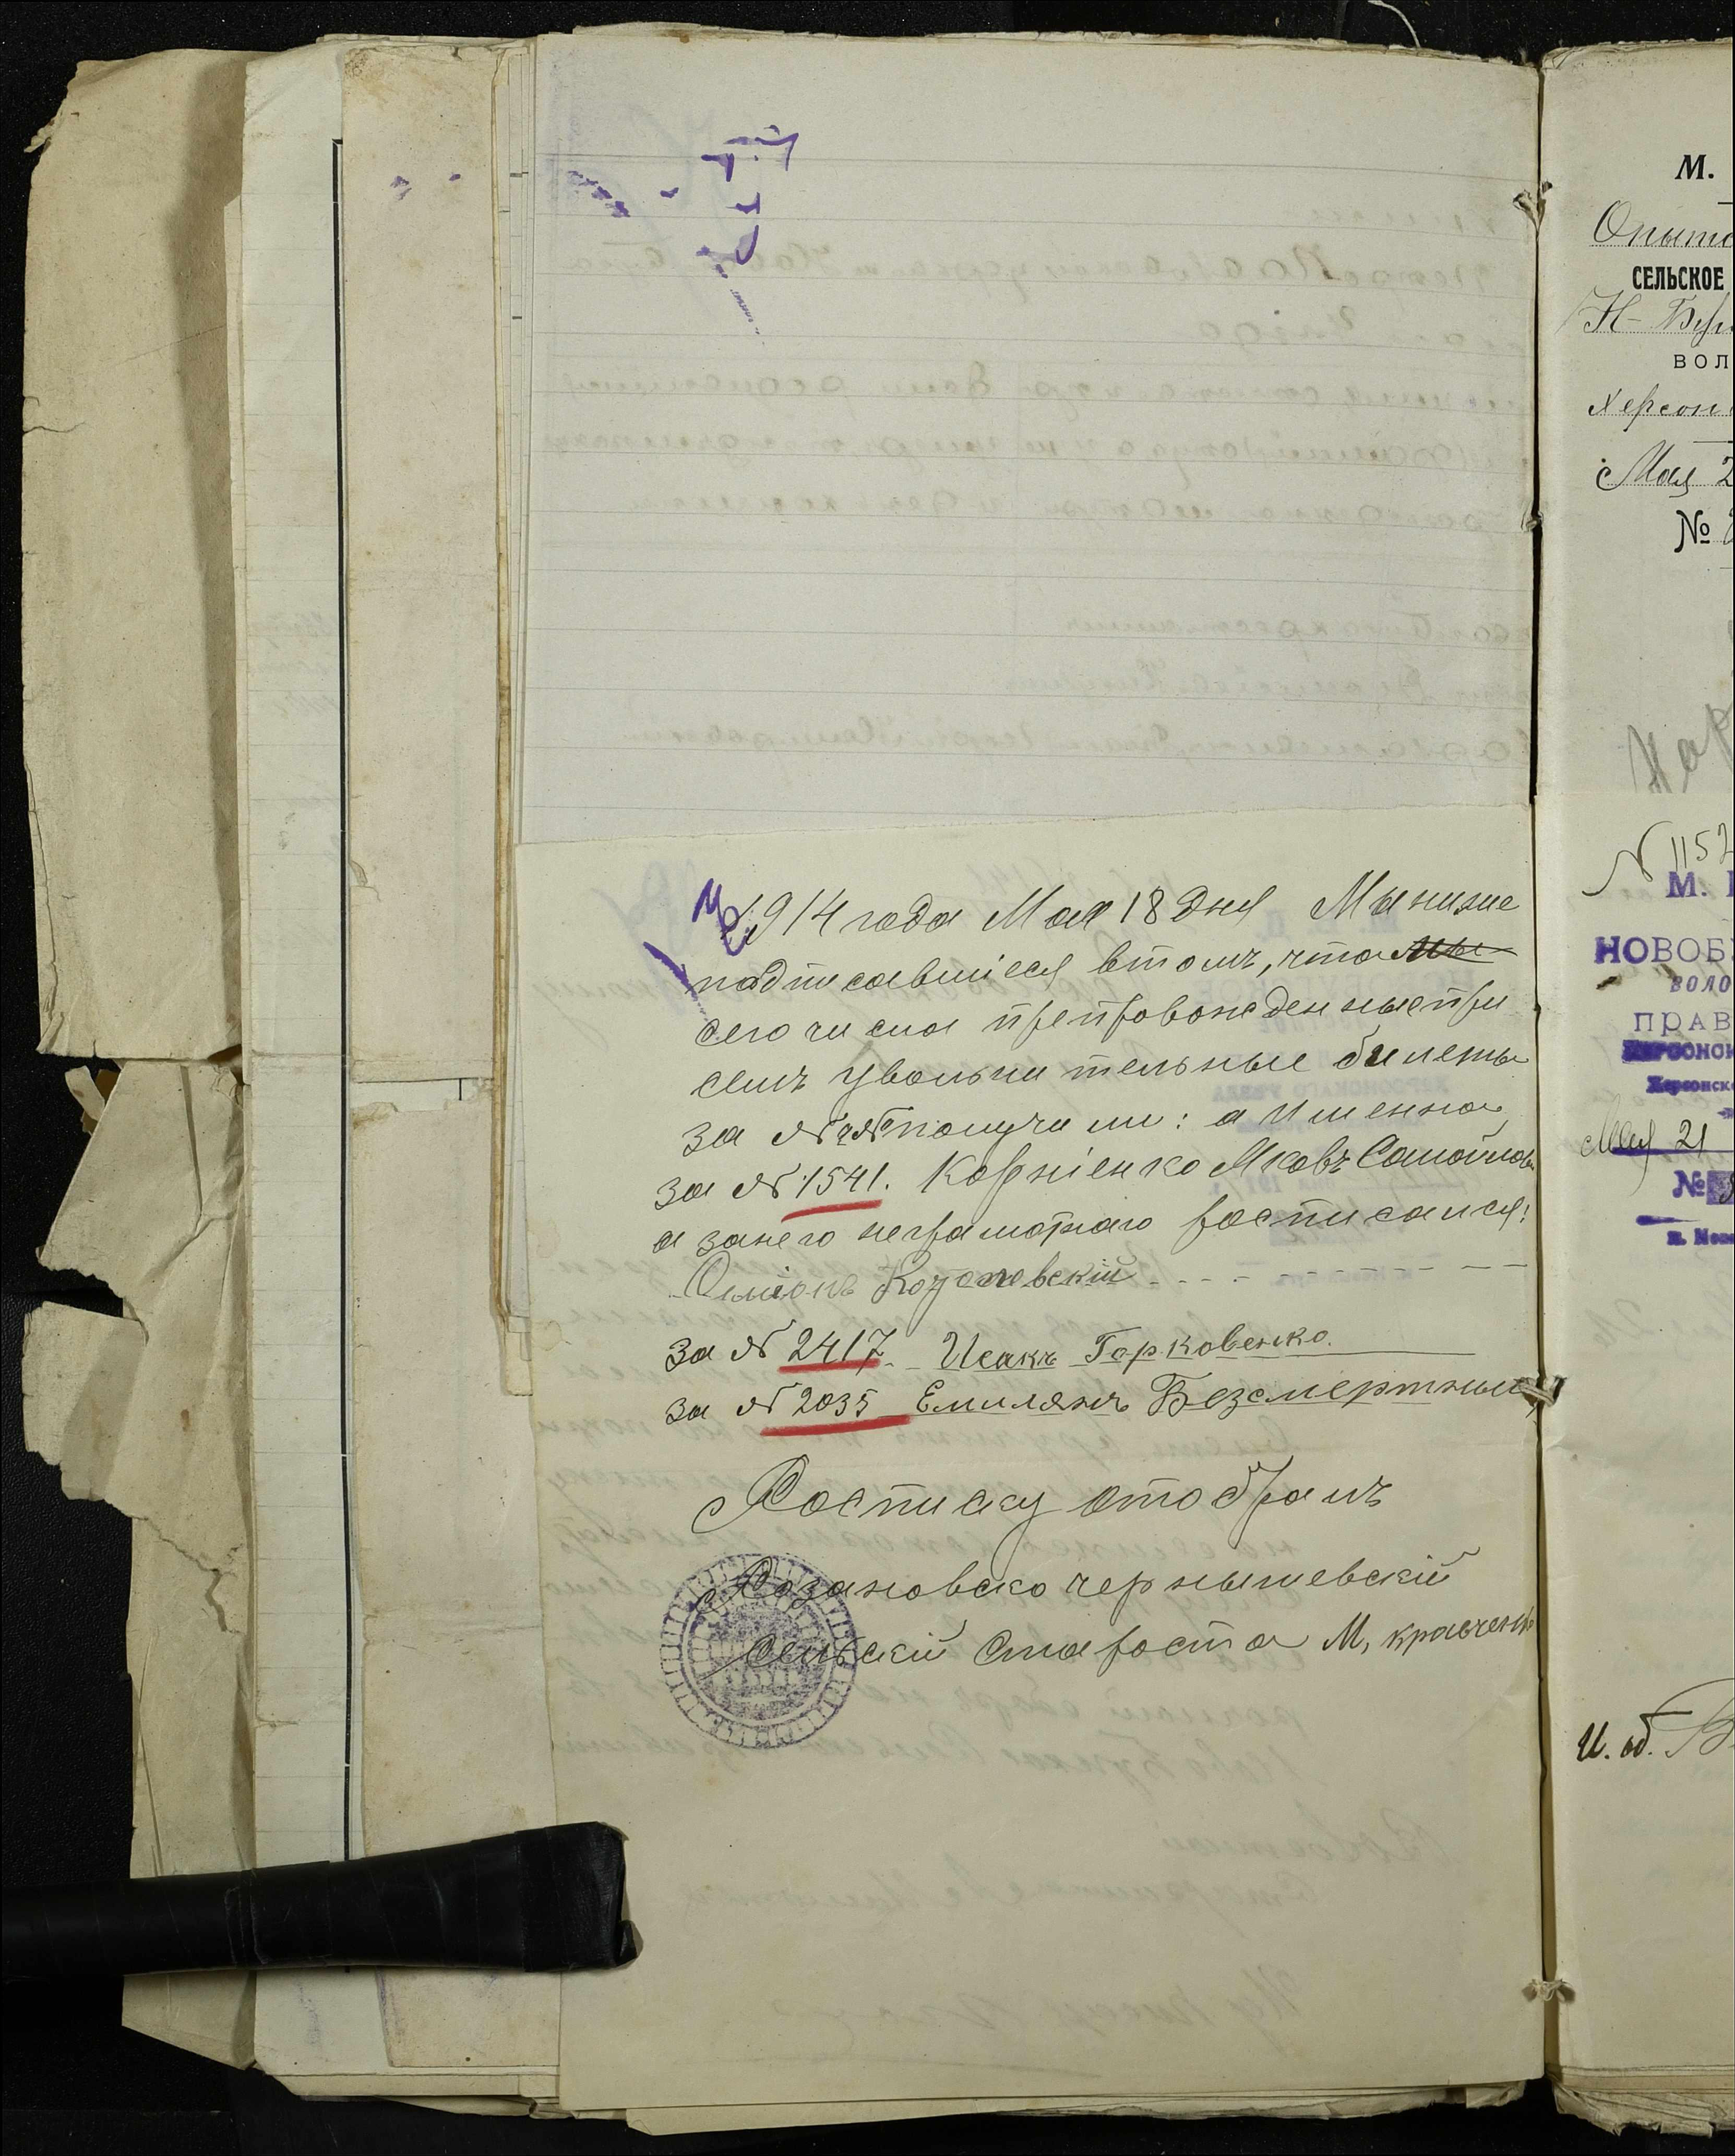 1914 года Мая 18 дня Мы ниже
подписавшіеся втомъ, что мы
сего числа препровожденные при
семъ увольнительные билеты
за №№ получили: а именно
за № 1541. Корніенко Яковъ Самойлов
а занего неграматнаго росписался:
за № 2417. Исакъ Горковенко.
за № 2035 Емилянъ Безсмертный
Росписку отобралъ
Розановско чернышевскій
Сельскій Староста М, кравченко
М.
СЕЛЬСКОЕ
ВОЛ
Херсон
Мая 2
№
№ 1152
М.
НОВОБ
ВОЛО
ПРАВ
Херсонск
Мая 21
№
И. об.